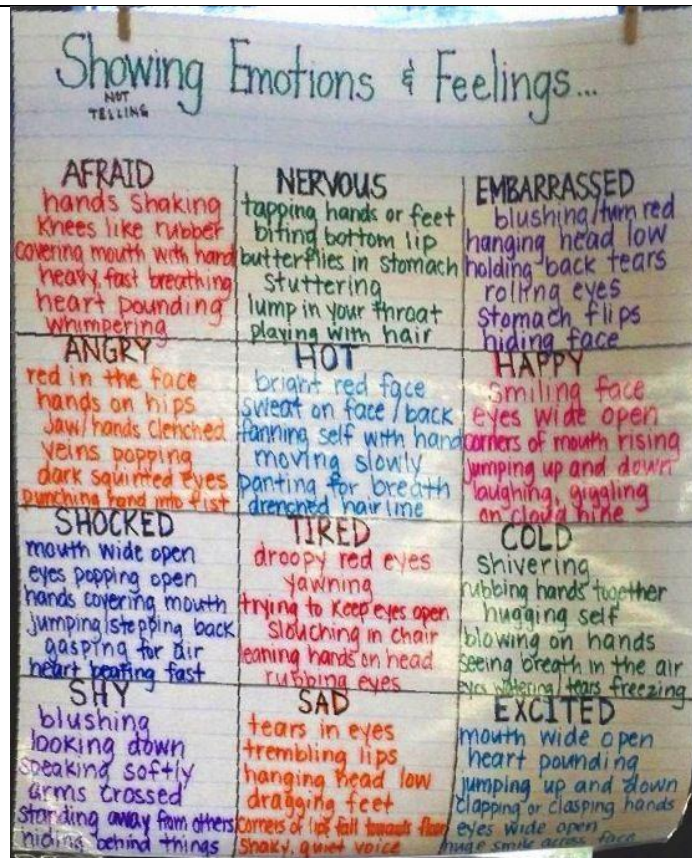 Showing Emotions & Feelings...
NOT
TELLING
AFRAID
hands shaking
Knees like rubber
covering mouth with hand
heavy, fast breathing
heart pounding
whimpering
NERVOUS
tapping hands or feet
biting bottom lip
butterflies in stomach
stuttering
lump in your throat
playing with hair
EMBARRASSED
blushing/turn red
hanging head low
holding back tears
rolling eyes
stomach flips
hiding face
ANGRY
red in the face
hands on hips
jaw/hands clenched
veins popping
dark squinted eyes
punching hand into fist
HOT
bright red face
sweat on face/back
fanning self with hand
moving slowly
panting for breath
drenched hairline
HAPPY
smiling face
eyes wide open
corners of mouth rising
jumping up and down
laughing, giggling
on cloud nine
SHOCKED
mouth wide open
eyes popping open
hands covering mouth
jumping/stepping back
gasping for air
heart beating fast
TIRED
droopy red eyes
yawning
trying to keep eyes open
slouching in chair
leaning hands on head
rubbing eyes
COLD
shivering
rubbing hands together
hugging self
blowing on hands
seeing breath in the air
eyes watering/tears freezing
SHY
blushing
looking down
speaking softly
arms crossed
standing away from others
hiding behind things
SAD
tears in eyes
trembling lips
hanging head low
dragging feet
corners of lips fall towards floor
shaky, quiet voice
EXCITED
mouth wide open
heart pounding
jumping up and down
clapping or clasping hands
eyes wide open
huge smile across face